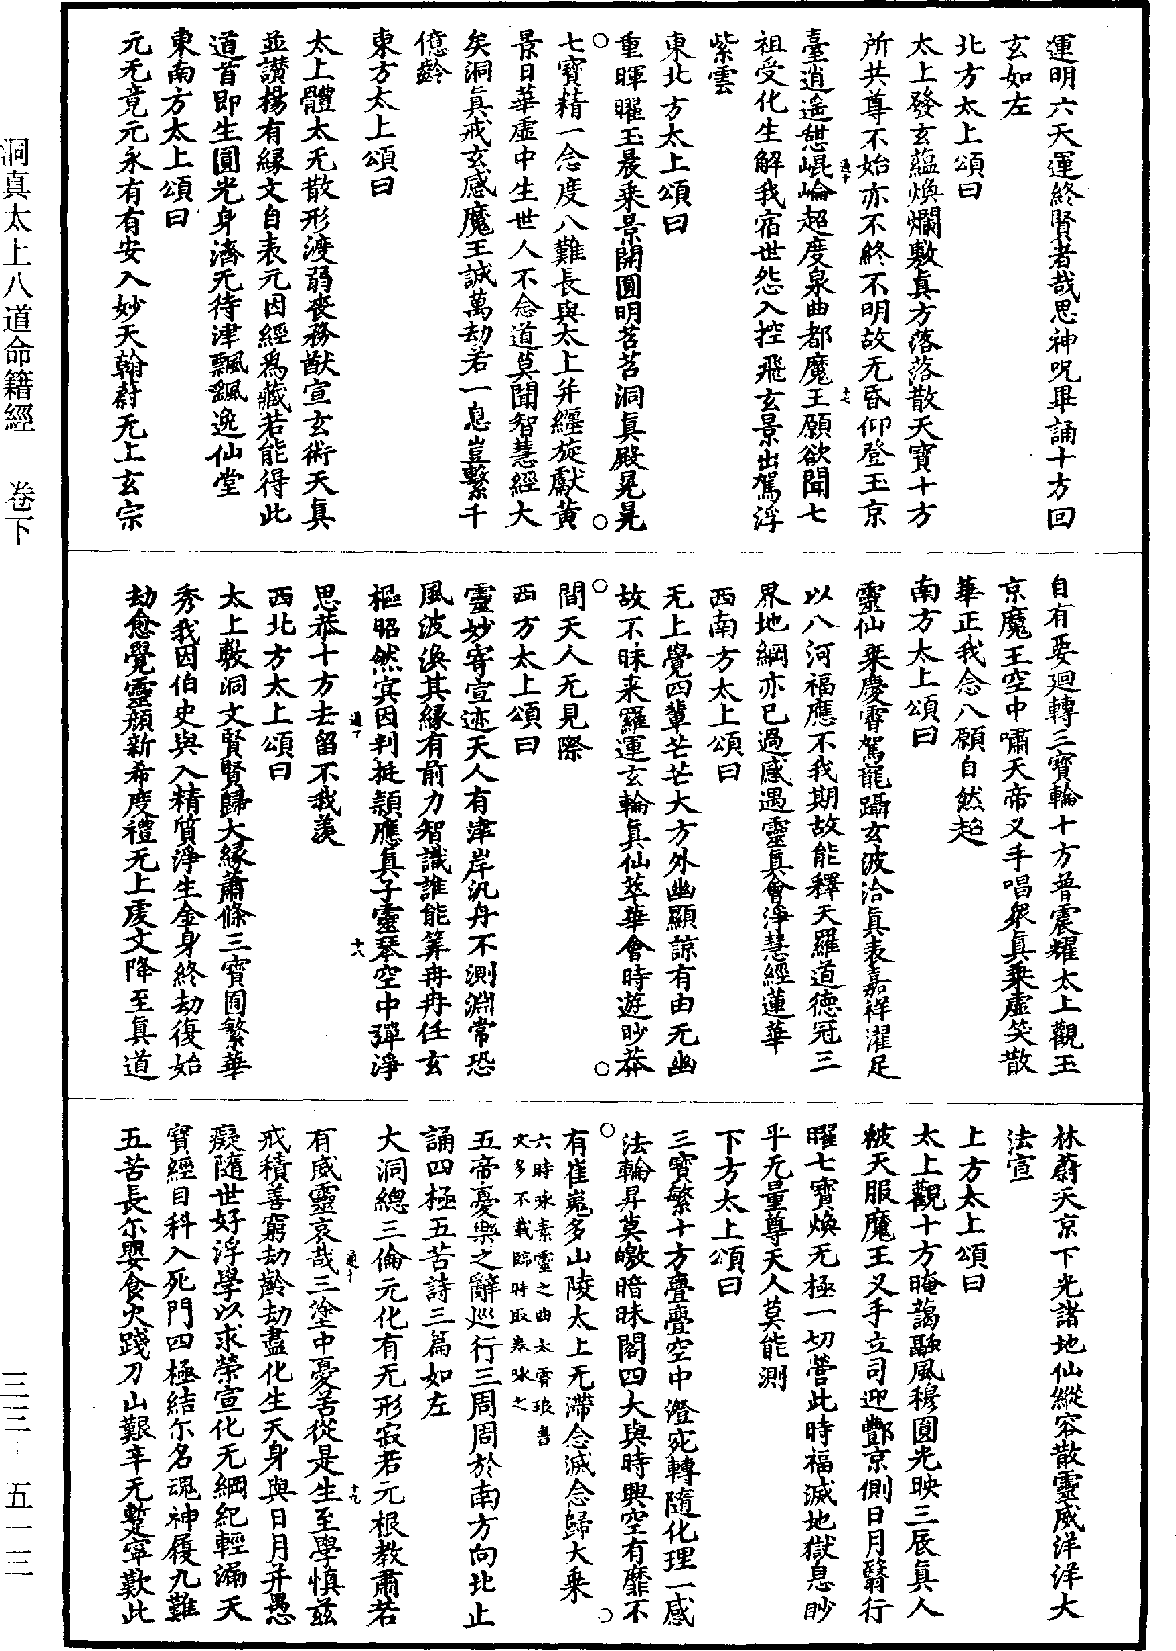 運明六天運終賢者哉思神呪畢誦十方回
玄如左
北方太上頌曰
太上發玄蘊煥爛敷真方落落散天寶十方
所共尊不始亦不終不明故无昏仰登玉京
臺逍遙憇崐崘超度泉曲都魔王願欲聞七
祖受化生解我宿世怨入控飛玄景出駕浮
紫雲
東北方太上頌曰
重暉曜玉晨乘景開圓明苕苕洞真殿晃晃
七寶精一念度八難長與太上并纏旋獻黃
景日華虛中生世人不念道莫聞智慧經大
矣洞真戒玄感魔王誠萬劫若一息豈繫千
億齡
東方太上頌曰
太上體太无散形渡弱喪務猷宣玄術天真
並讃揚有緣文自表元因經為藏若能得此
道首即生圓光身濟无待津飄飄逸仙堂
東南方太上頌曰
元无竟元永有有安入妙天翰蔚无上玄宗
自有要廻轉三寶輪十方普震耀太上觀玉
京魔王空中嘯天帝叉手唱衆真乘虛笑散
華正我念八願自然超
南方太上頌曰
靈仙乘慶霄駕龍躡玄波洽真表嘉祥濯足
以八河福應不我期故能釋天羅道德冠三
界地網亦已過感遇靈真會淨慧經蓮華
西南方太上頌曰
无上覺四輩芒芒大方外幽顯諒有由无幽
故不昧来羅運玄輪真仙萃華會時遊眇莽
間天人无見際
西方太上頌曰
靈妙寄宣迹天人有津岸汎舟不測淵常恐
風波渙其緣有前力智識誰能筭冉冉任玄
樞昭然冥因判挺頴應真子靈琴空中彈淨
思恭十方去留不我羨
西北方太上頌曰
太上敷洞文賢賢歸大緣蕭條三寶囿繁華
秀我因伯史與入精質淨生金身終劫復始
劫愈覺靈顏新希度禮无上虔文降至真道
林蔚天京下光諸地仙縱容散靈威洋洋大
法宣
上方太上頌曰
太上觀十方晻藹融風穆圓光映三辰真人
被天服魔王叉手立司迎酆京側日月翳行
曜七寶煥无極一切蒼此時福滅地獄息眇
乎无量尊天人莫能測
下方太上頌曰
三寶繁十方疊疊空中澄宛轉隨化理一感
法輪昇莫皦暗昧閣四大與時興空有靡不
有崔嵬多山陵太上无滯念滅念歸大乘
六時詠素靈之曲太霄琅書
文多不載臨時取来詠之
五帝憂樂之辭巡行三周周於南方向北止
誦四極五苦詩三篇如左
大洞總三倫元化有无形寂若元根教肅若
有威靈哀哉三塗中憂苦從是生至學慎兹
戒積善窮劫齡劫盡化生天身與日月并愚
癡隨世好浮學以求榮宣化无綱紀輕漏天
寶經目科入死門四極結尓名魂神履九難
五苦長尓嬰食火踐刀山艱辛无蹔寧歎此
洞真太上八道命籍經　卷下
三三・五一三